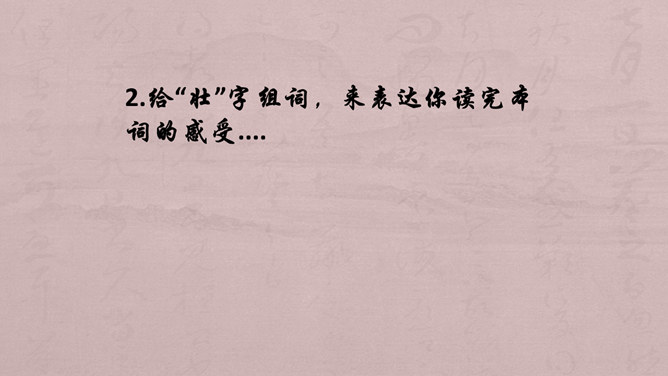 2.给“壮”字组词，来表达你读完本
词的感受....